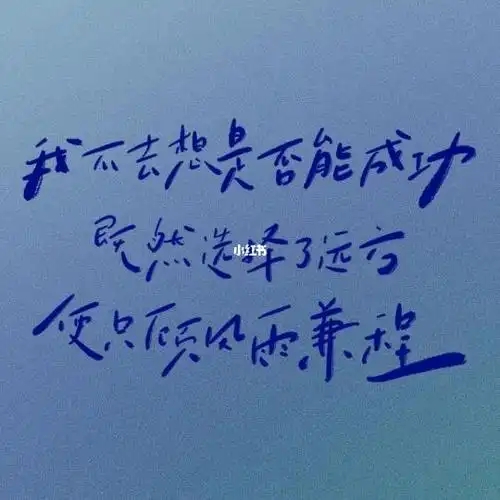 我不去想是否能成功
既然选择了远方
小红书
便只顾风雨兼程